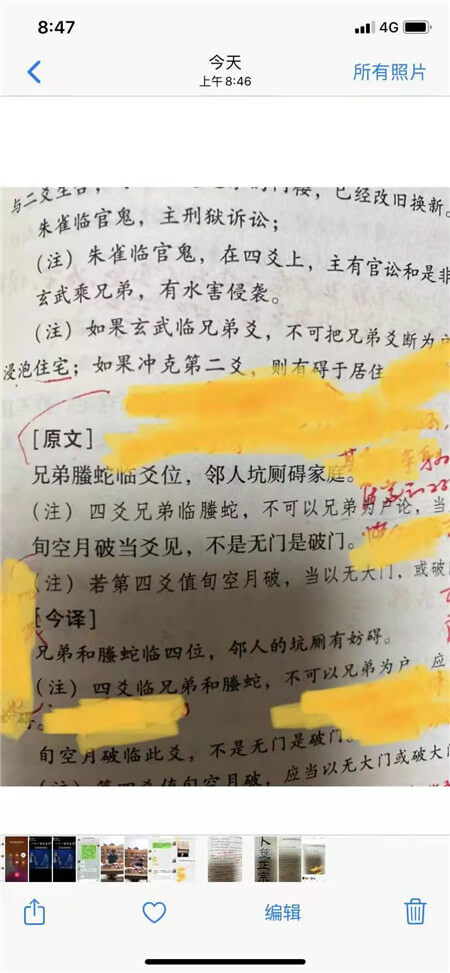 8:47
4G
今天
上午8:46
所有照片
与二爻生合，
门楼，已经改旧换新。
朱雀临官鬼，主刑狱诉讼；
（注）朱雀临官鬼，在四爻上，主有官讼和是非
玄武乘兄弟，有水害侵袭。
（注）如果玄武临兄弟爻，不可把兄弟爻断为户
浸泡住宅；如果冲克第二爻，则有碍于居住
［原文］
兄弟螣蛇临爻位，邻人坑厕碍家庭。
（注）四爻兄弟临螣蛇，不可以兄弟为户论，当
旬空月破当爻见，不是无门是破门。
（注）若第四爻值旬空月破，当以无大门，或破
［今译］
兄弟和螣蛇临四位，邻人的坑厕有妨碍。
（注）四爻临兄弟和螣蛇，不可以兄弟为户，应
旬空月破临此爻，不是无门是破门。
（注）第四爻值旬空月破，应当以无大门或破大门
卜筮正宗
编辑